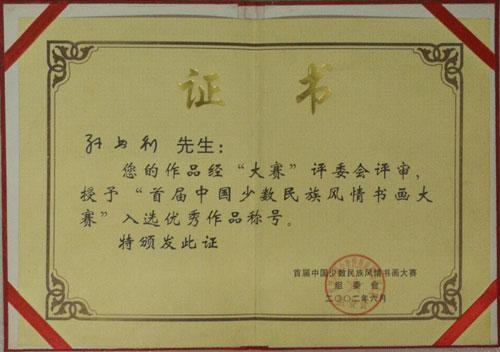 证书
先生：
您的作品经“大赛”评委会评审，
授予“首届中国少数民族风情书画大
赛”入选优秀作品称号。
特颁发此证
首届中国少数民族风情书画大赛
组委会
二〇〇二年六月